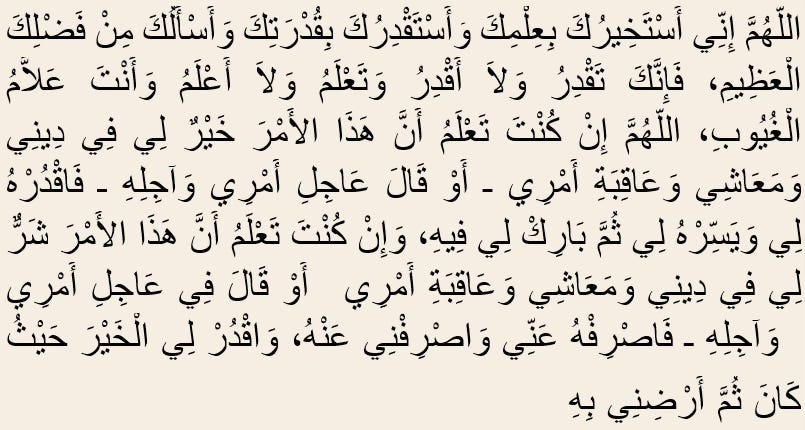 اللّهُمَّ إِنِّي أَسْتَخِيرُكَ بِعِلْمِكَ وَأَسْتَقْدِرُكَ بِقُدْرَتِكَ وَأَسْأَلُكَ مِنْ فَضْلِكَ
الْعَظِيمِ، فَإِنَّكَ تَقْدِرُ وَلاَ أَقْدِرُ وَتَعْلَمُ وَلاَ أَعْلَمُ وَأَنْتَ عَلاَّمُ
الْغُيُوبِ، اللّهُمَّ إِنْ كُنْتَ تَعْلَمُ أَنَّ هَذَا الأَمْرَ خَيْرٌ لِي فِي دِينِي
وَمَعَاشِي وَعَاقِبَةِ أَمْرِي ـ أَوْ قَالَ عَاجِلِ أَمْرِي وَآجِلِهِ ـ فَاقْدُرْهُ
لِي وَيَسِّرْهُ لِي ثُمَّ بَارِكْ لِي فِيهِ، وَإِنْ كُنْتَ تَعْلَمُ أَنَّ هَذَا الأَمْرَ شَرٌّ
لِي فِي دِينِي وَمَعَاشِي وَعَاقِبَةِ أَمْرِي أَوْ قَالَ فِي عَاجِلِ أَمْرِي
وَآجِلِهِ ـ فَاصْرِفْهُ عَنِّي وَاصْرِفْنِي عَنْهُ، وَاقْدُرْ لِي الْخَيْرَ حَيْثُ
كَانَ ثُمَّ أَرْضِنِي بِهِ